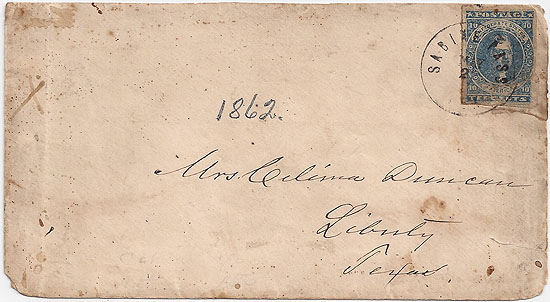 POSTAGE
10 10
SABI PASS
10 10
TEN CENTS
1862.
Mrs Celima Duncan
Liberty
Texas